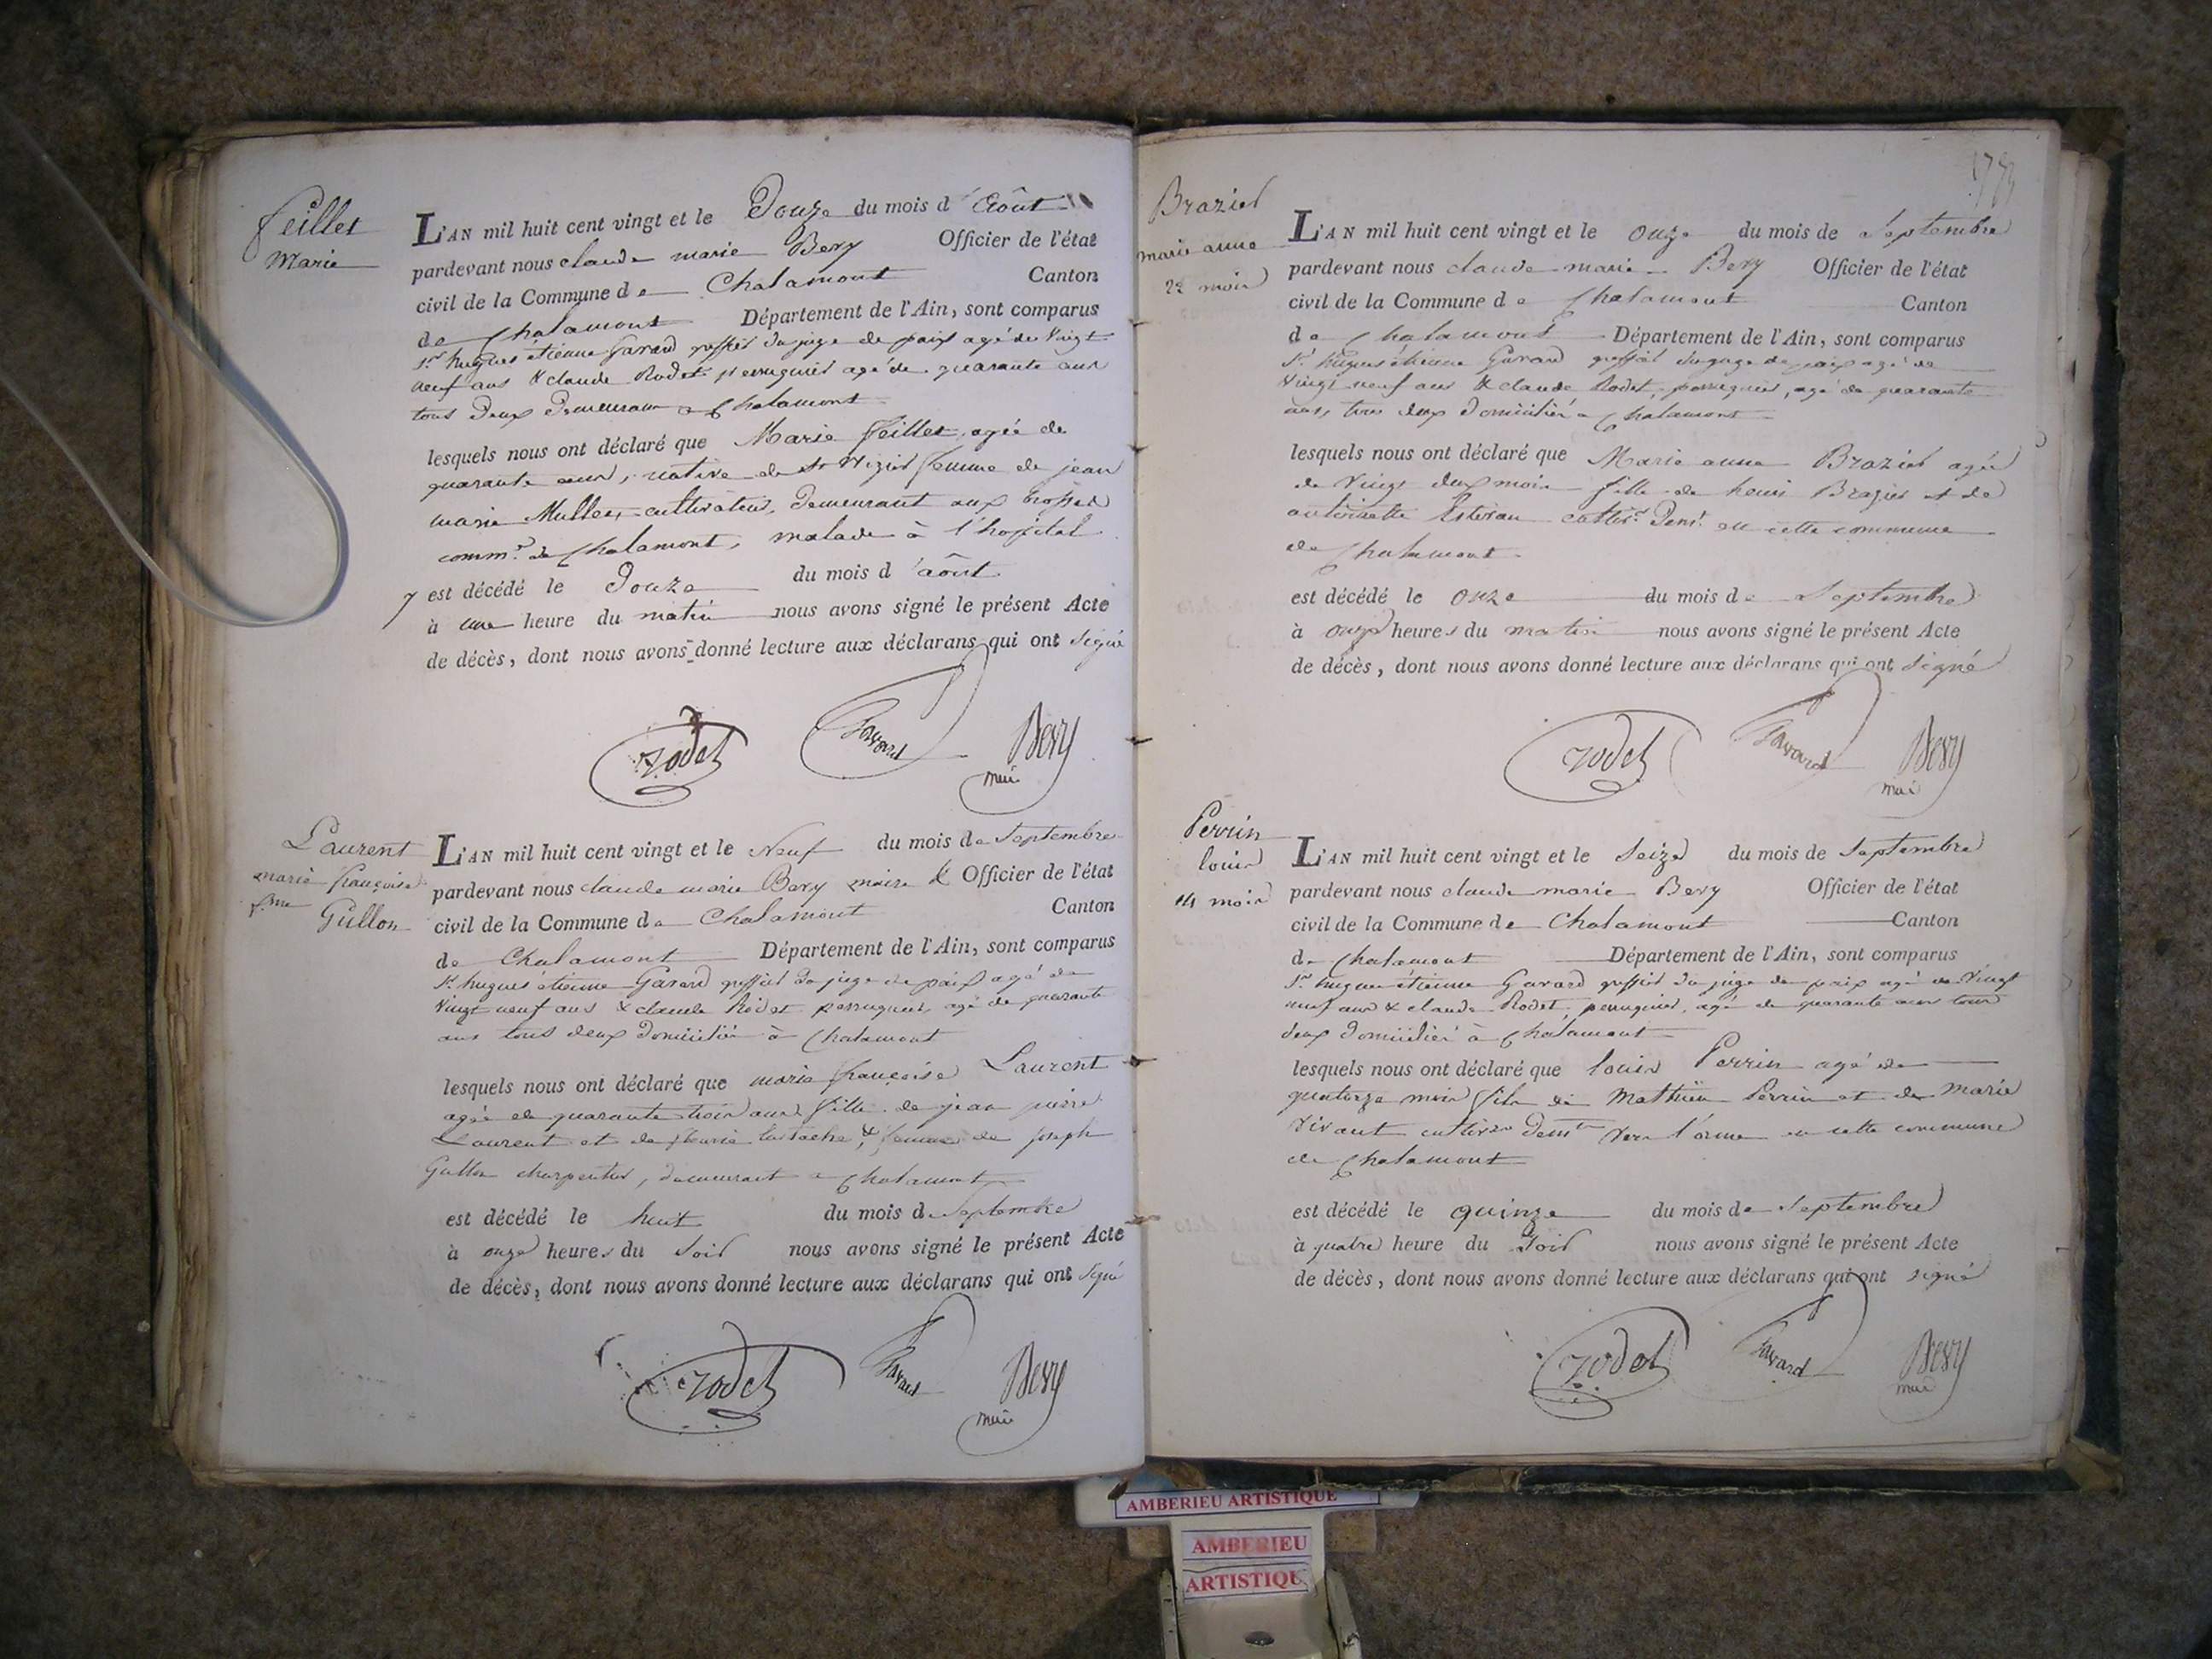 feillet
Marie
L'AN mil huit cent vingt et le Douze du mois d'Août
pardevant nous claude marie Bery Officier de l'état
civil de la Commune de Chalamont Canton
de Chalamont Département de l'Ain, sont comparus
Sr hugues étienne Gavard greffier du juge de paix agé de Vingt
neuf ans & claude Rodet perruquier agé de quarante ans
tous Deux Demeurant a Chalamont
lesquels nous ont déclaré que Marie feillet, agée de
quarante ans, native de St Nizier femme de jean
marie Mullet cultivateur, Demeurant aux
comm.e de Chalamont, malade à l'hopital
est décédé le Douze du mois d'août
à une heure du matin nous avons signé le présent Acte
de décès, dont nous avons donné lecture aux déclarans qui ont signé
Rodet Gavard Bery
maire
Laurent
marie françoise
f.me
Gullon
L'AN mil huit cent vingt et le Neuf du mois de Septembre
pardevant nous claude marie Bery maire & Officier de l'état
civil de la Commune de Chalamont Canton
de Chalamont Département de l'Ain, sont comparus
Sr hugues étienne Gavard greffier du juge de paix agé de
Vingt neuf ans & claude Rodet perruquier, agé de quarante
ans tous deux Domicilié à Chalamont
lesquels nous ont déclaré que marie françoise Laurent
agée de quarante trois ans fille de jean pierre
Laurent et de fleurie Eustache, & femme de joseph
Gullon charpentier, demeurant a Chalamont
est décédé le huit du mois de Septembre
à onze heures du Soir nous avons signé le présent Acte
de décès, dont nous avons donné lecture aux déclarans qui ont signé
Rodet Gavard Bery
maire
Brazier
marie anne
22 mois
L'AN mil huit cent vingt et le onze du mois de Septembre
pardevant nous claude marie Bery Officier de l'état
civil de la Commune de Chalamont Canton
de Chalamont Département de l'Ain, sont comparus
Sr hugues étienne Gavard greffier du juge de paix agé de
Vingt neuf ans & claude Rodet, perruquier, agé de quarante
ans, tous deux domicilié a Chalamont
lesquels nous ont déclaré que Marie anne Brazier agée
de Vingt deux mois fille de henri Brazier et de
antoinette cultiv.r Dem.t en cette commune
de Chalamont
est décédé le onze du mois de Septembre
à onze heures du matin nous avons signé le présent Acte
de décès, dont nous avons donné lecture aux déclarans qui ont signé
Rodet Gavard Bery
maire
Perrin
louis
14 mois
L'AN mil huit cent vingt et le Seize du mois de Septembre
pardevant nous claude marie Bery Officier de l'état
civil de la Commune de Chalamont Canton
de Chalamont Département de l'Ain, sont comparus
Sr hugue étienne Gavard greffier du juge de paix agé de Vingt
neuf ans & claude Rodet, perruquier, agé de quarante ans tous
deux Domicilié à Chalamont
lesquels nous ont déclaré que louis Perrin agé de
quatorze mois fils de Mathieu Perrin et de Marie
Vivant cultivr Demt Vers l'orme en cette commune
de Chalamont
est décédé le quinze du mois de Septembre
à quatre heure du Soir nous avons signé le présent Acte
de décès, dont nous avons donné lecture aux déclarans qui ont signé
Rodet Gavard Bery
maire
AMBERIEU ARTISTIQUE
AMBERIEU
ARTISTIQU